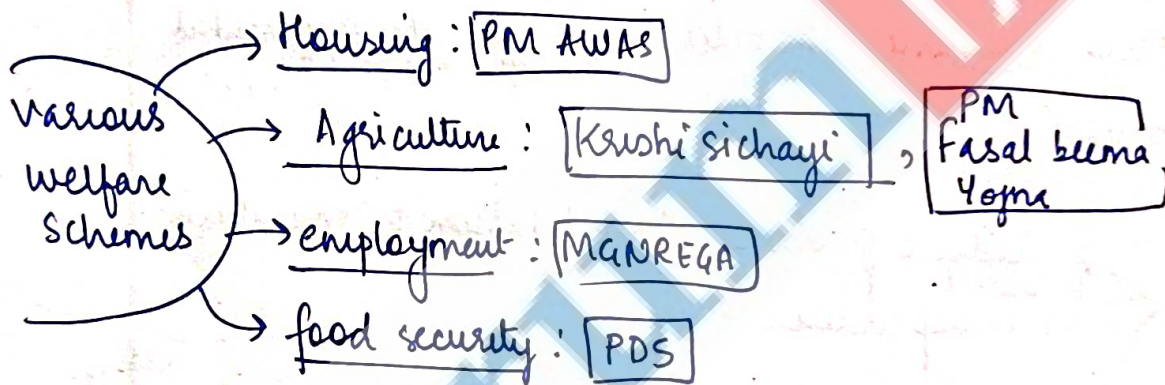 Various
welfare
Schemes
Housing : PM AWAS
Agriculture : Krishi sichayi , PM
Fasal beema
Yojna
employment : MGNREGA
food security : PDS